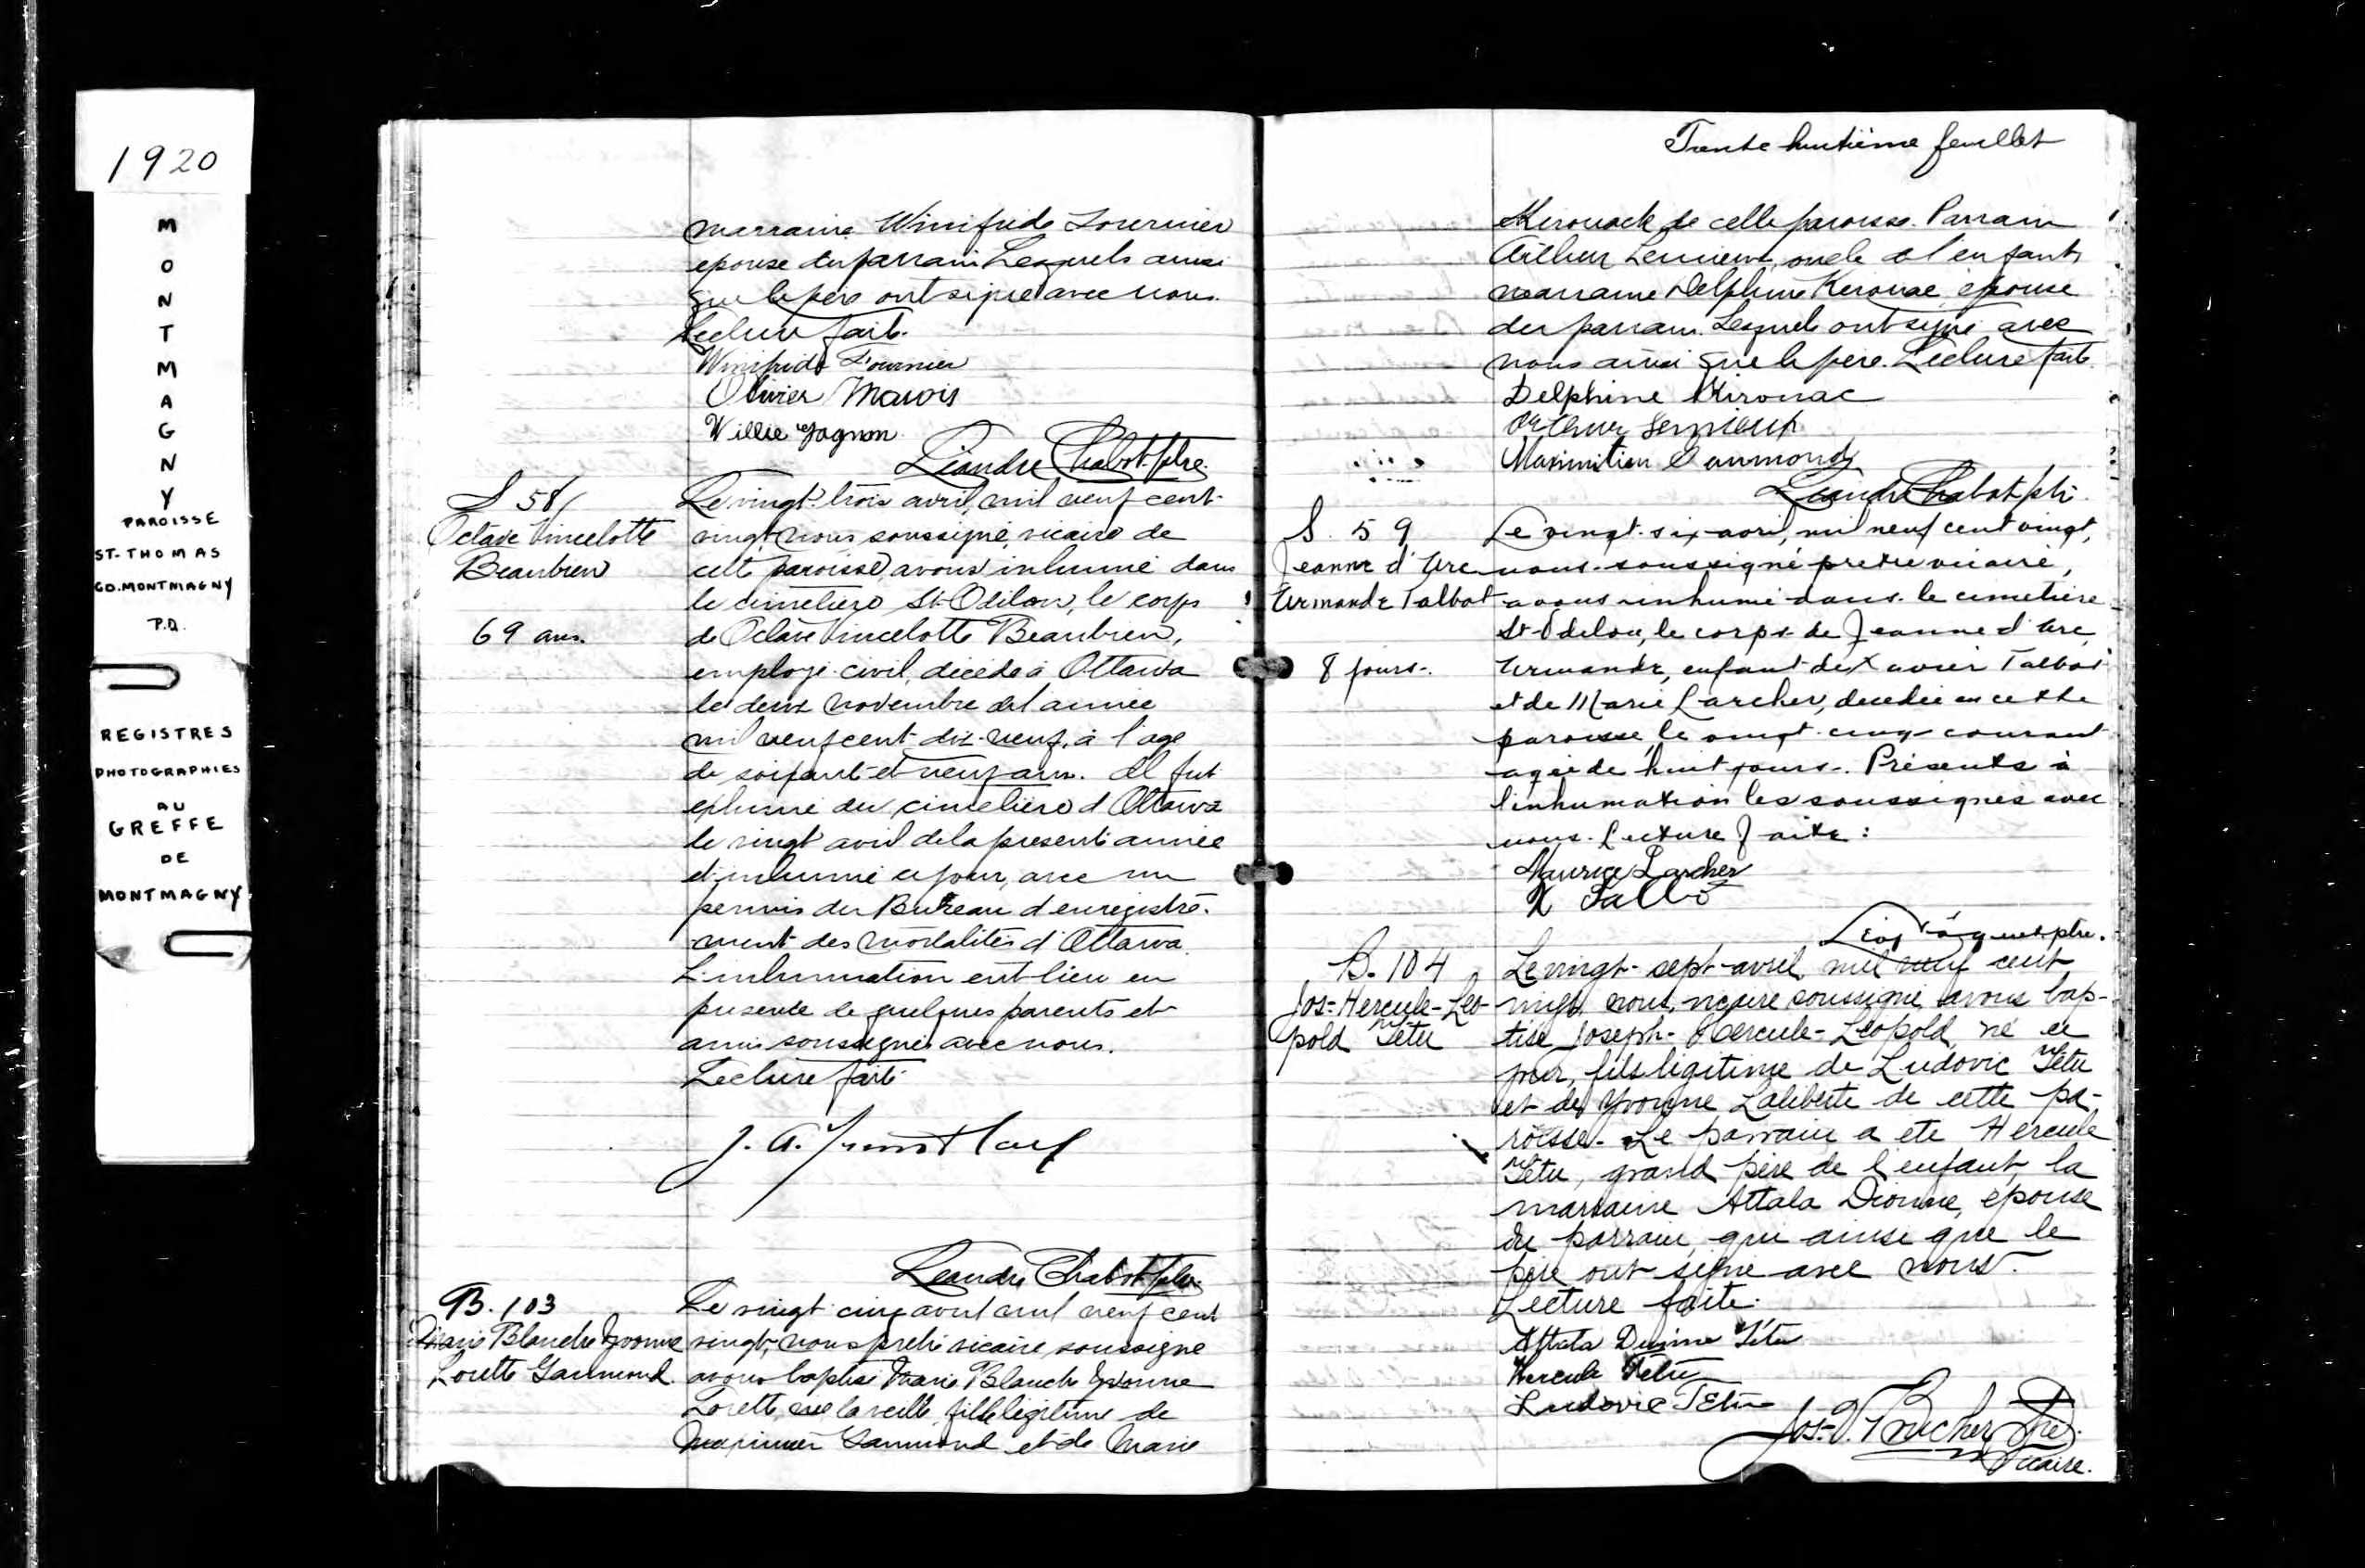 1920
MONTMAGNY
PAROISSE
ST-THOMAS
CO. MONTMAGNY
P.Q.
REGISTRES
PHOTOGRAPHIES
AU
GREFFE
DE
MONTMAGNY
marraine Winifride Fournier
epouse du parrain Lesquels ainsi
que le père ont signé avec nous.
Lecture faite.
Winifride Fournier
Olivier Marois
Willie Gagnon
Léandre Chabot ptre.
S 58
Octave Vincelotte
Beaubien
69 ans.
Le vingt-trois avril, mil neuf cent
vingt, nous soussigné, vicaire de
cette paroisse, avons inhumé dans
le cimetière St-Odilon, le corps
de Octave Vincelotte Beaubien,
employé civil, décédé à Ottawa
le deux novembre de l'année
mil neuf cent dix-neuf, à l'age
de soixante et neuf ans. Il fut
exhumé du cimetière d'Ottawa
le vingt avril de la présente année
et inhumé ce jour, avec un
permis du Bureau d'enregistre-
ment des mortalités d'Ottawa.
L'inhumation eut lieu en
présence de quelques parents et
amis soussignés avec nous.
Lecture faite
J. A.
Léandre Chabot ptre.
B. 103
Marie Blanche Yvonne
Lorette Gaumond.
Le vingt cinq avril mil neuf cent
vingt, nous prêtre vicaire soussigné
avons baptisé Marie Blanche Yvonne
Lorette, née la veille, fille légitime de
Maximien Gaumond et de Marie
Trente huitième feuillet
Kerouack de cette paroisse. Parrain
Arthur Lemieux, oncle de l'enfant,
marraine Delphine Kerouac, épouse
du parrain. Lesquels ont signé avec
nous ainsi que le père. Lecture faite.
Delphine Kirouac
Arthur Lemieux
Maximilien Gaumond
Léandre Chabot ptr.
S. 59
Jeanne d'Arc
Armande Talbot
8 jours.
Le vingt-six avril, mil neuf cent vingt,
nous soussigné prêtre vicaire,
avons inhumé dans le cimetière
St-Odilon, le corps de Jeanne d'Arc
Armande, enfant de Xavier Talbot
et de Marie Larcher, décédée en cette
paroisse, le vingt-cinq courant
agée de huit jours. Présents à
l'inhumation les soussignés avec
nous. Lecture faite:
Maurice Larcher
X Talbo
ptre.
B. 104
Jos-Hercule-Léo-
pold Têtu
Le vingt-sept avril, mil neuf cent
vingt, nous, vicaire soussigné avons bap-
tisé Joseph-Hercule-Léopold, né ce
jour, fils légitime de Ludovic Têtu
et de Yvonne Laliberté de cette pa-
roisse. Le parrain a été Hercule
Têtu, grand père de l'enfant, la
marraine Attala Dionne, épouse
du parrain, qui ainsi que le
père ont signé avec nous.
Lecture faite.
Attala Dionne Têtu
Hercule Tetu
Ludovic Tétu
Jos-O. Boucher Ptre.
Vicaire.